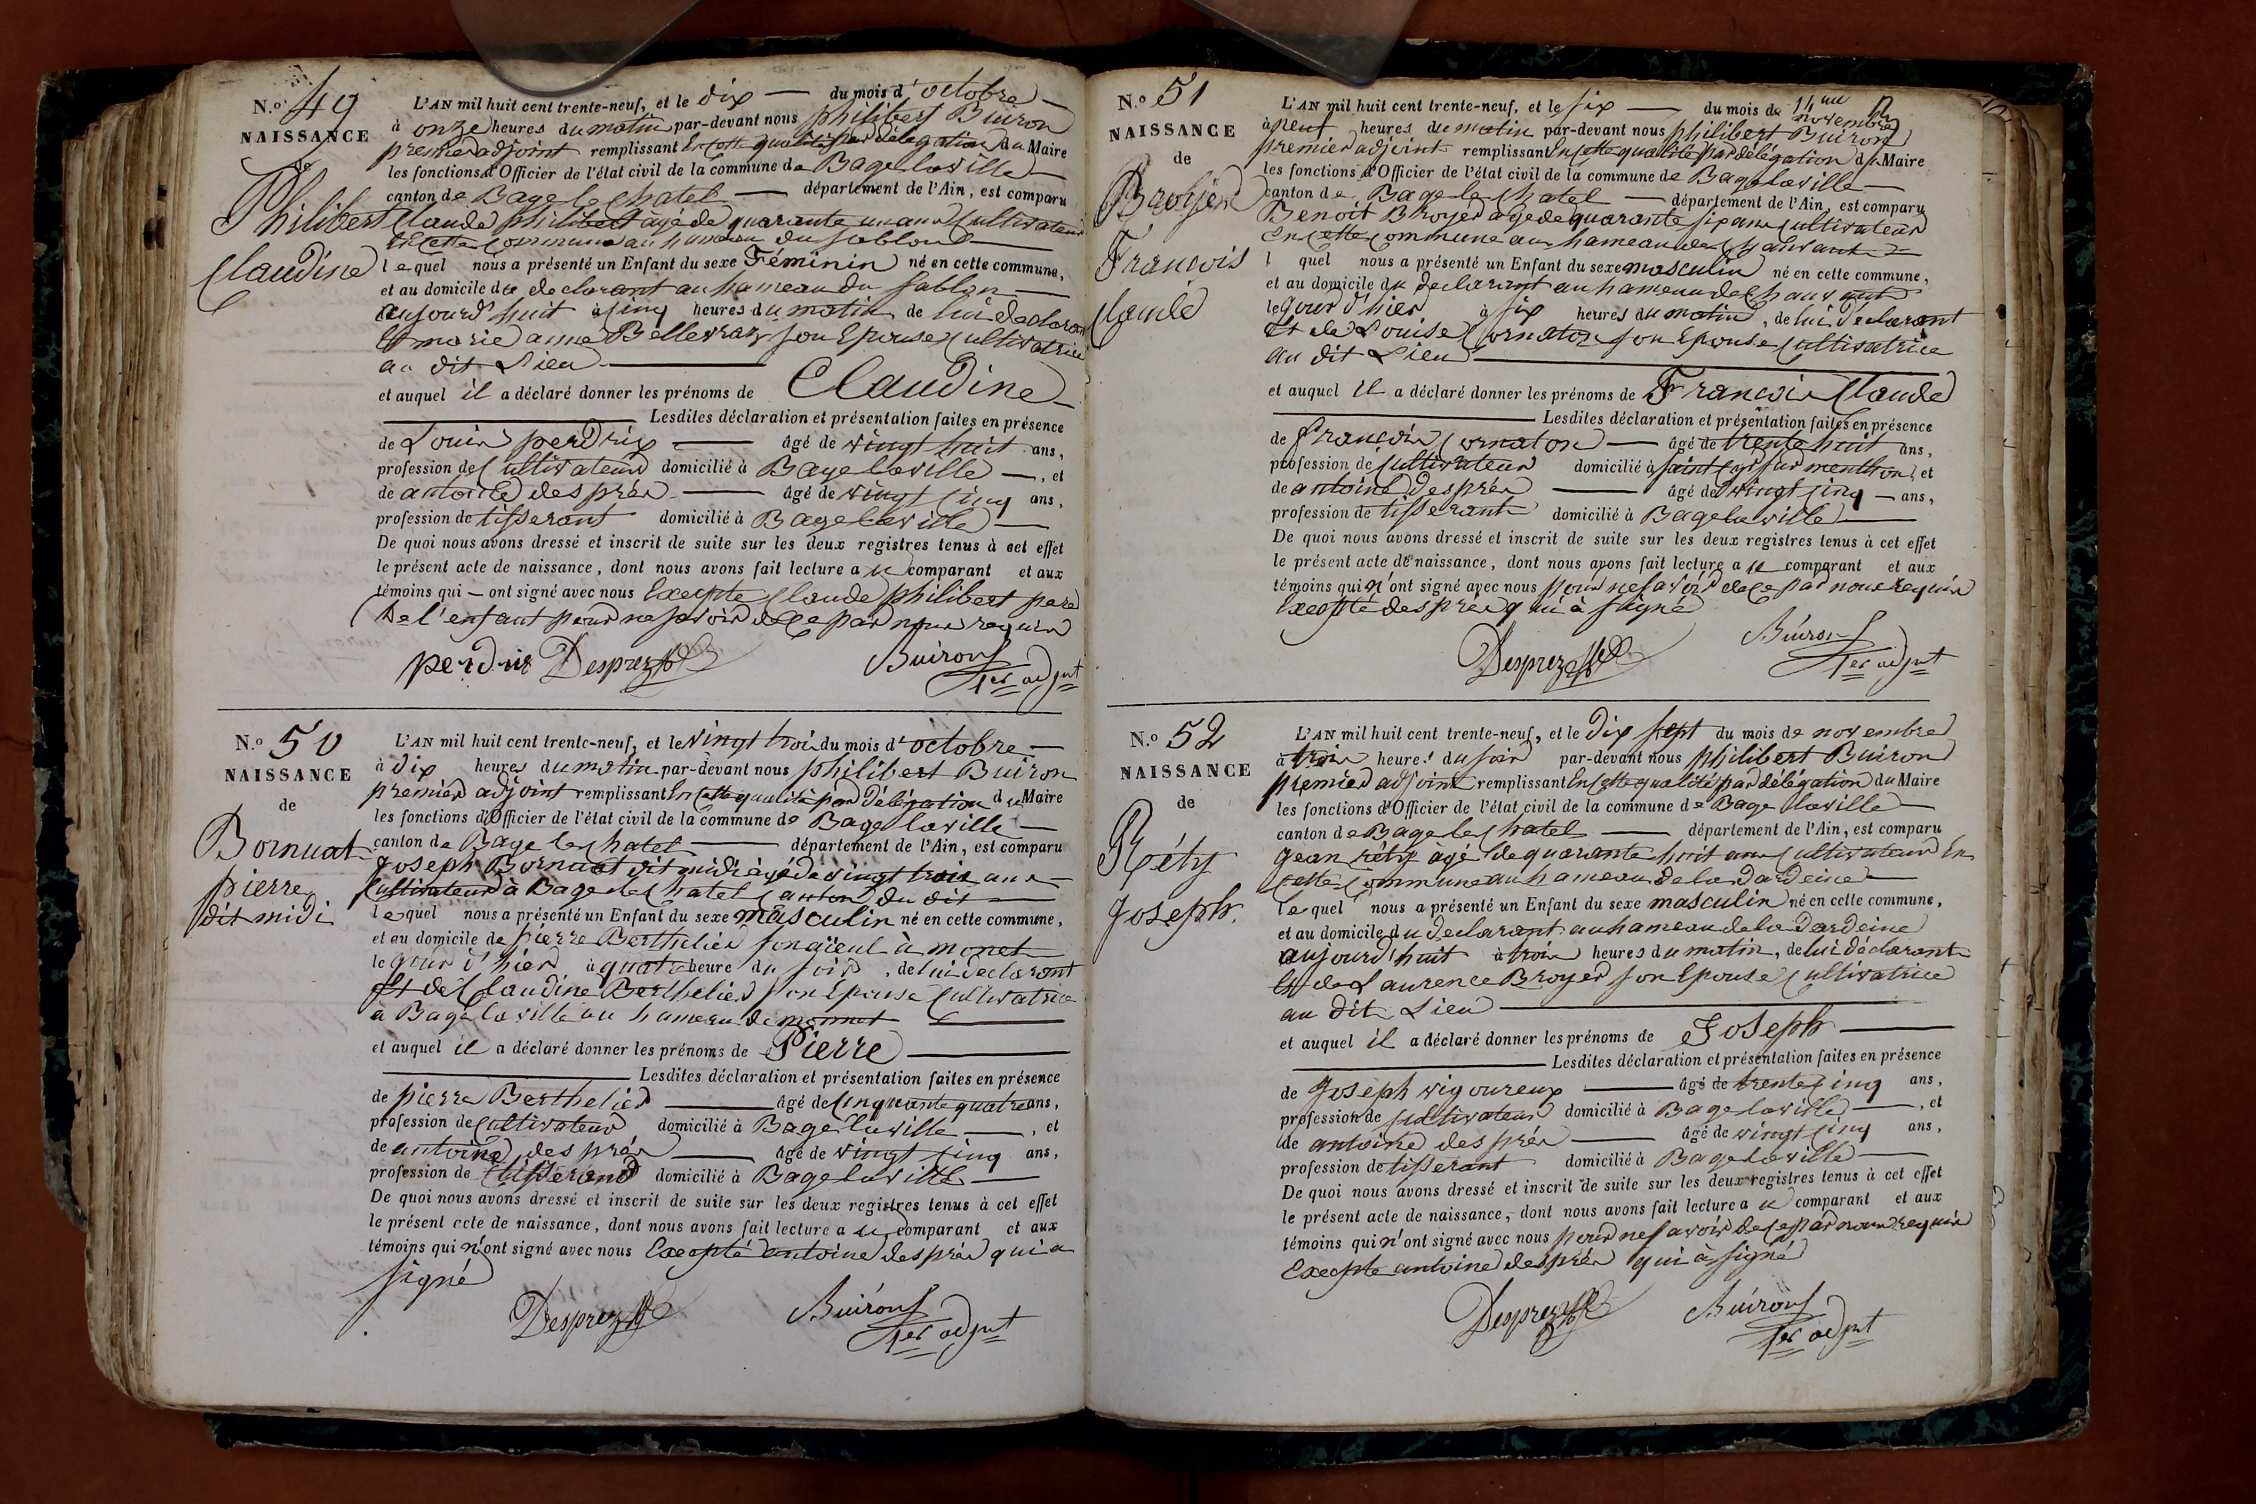 N.o 49
NAISSANCE
de
Philibert
Claudine
L'AN mil huit cent trente-neuf, et le dix du mois d'octobre
à onze heures du matin par-devant nous philibert Buiron
premier adjoint remplissant En cette qualité par délégation du Maire
les fonctions d'Officier de l'état civil de la commune de Bagé laville
canton de Bage le Chatel département de l'Ain, est comparu
Claude philibert agé de quarante un ans Cultivateur
En cette Commune au hameau du sablon
lequel nous a présenté un Enfant du sexe Féminin né en cette commune,
et au domicile du declarant au hameau du sablon
aujourd'huit à Cinq heures du matin de lui declarant
Et marie anne Bellevrat son Epouse Cultivatrice
au dit Lieu
et auquel il a déclaré donner les prénoms de Claudine
Lesdites déclaration et présentation faites en présence
de Louis perdrix âgé de vingt huit ans,
profession de Cultivateur domicilié à Bage laville, et
de antoine després âgé de vingt Cinq ans,
profession de tisserant domicilié à Bage laville
De quoi nous avons dressé et inscrit de suite sur les deux registres tenus à cet effet
le présent acte de naissance, dont nous avons fait lecture au comparant et aux
témoins qui ont signé avec nous Excepte Claude philibert pere
De l'enfant pour ne savoir de ce par nous requis
perdrix Desprez Buiron
1er adjnt
N.o 50
NAISSANCE
de
Bornuat
pierre
dit midi
L'AN mil huit cent trente-neuf, et le vingt trois du mois d'octobre
à dix heures du matin par-devant nous philibert Buiron
premier adjoint remplissant En cette qualité par délégation du Maire
les fonctions d'Officier de l'état civil de la commune de Bage laville
canton de Bage le Chatel département de l'Ain, est comparu
Joseph Bornuat dit midi agé de vingt trois ans
Cultivateur à Bage le Chatel Canton du dit
lequel nous a présenté un Enfant du sexe masculin né en cette commune,
et au domicile de pierre Berthelier son aïeul à monet
le jour d'hier à quatre heure du soir, de lui declarant
Et de Claudine Berthelier son Epouse Cultivatrice
a Bagé laville au hameau de monnet
et auquel il a déclaré donner les prénoms de Pierre
Lesdites déclaration et présentation faites en présence
de pierre Berthelier âgé de Cinquante quatre ans,
profession de Cultivateur domicilié à Bagé laville, et
de antoine des prés âgé de vingt Cinq ans,
profession de tisserand domicilié à Bage laville
De quoi nous avons dressé et inscrit de suite sur les deux registres tenus à cet effet
le présent acte de naissance, dont nous avons fait lecture au comparant et aux
témoins qui n'ont signé avec nous Excepté antoine després qui a
signé
Desprez Buiron
1er adjnt
N.o 51
NAISSANCE
de
Broyer
François
Claude
L'AN mil huit cent trente-neuf, et le six du mois de novembre
à neuf heures du matin par-devant nous philibert Buiron
premier adjoint remplissant En cette qualité par délégation du Maire
les fonctions d'Officier de l'état civil de la commune de Bage laville
canton de Bage le Chatel département de l'Ain, est comparu
Benoit Broyer agé de quarante six ans Cultivateur
En cette Commune au hameau de
l quel nous a présenté un Enfant du sexe masculin né en cette commune,
et au domicile du declarant au hameau de
le jour d'hier à six heures du matin, de lui declarant
Et de Louise Cornaton son Epouse Cultivatrice
au dit Lieu
et auquel il a déclaré donner les prénoms de François Claude
Lesdites déclaration et présentation faites en présence
de françois Cornaton âgé de trente huit ans,
profession de Cultivateur domicilié à saint Cyr sur menthon, et
de antoine després âgé de vingt Cinq ans,
profession de tisserant domicilié à Bage laville
De quoi nous avons dressé et inscrit de suite sur les deux registres tenus à cet effet
le présent acte de naissance, dont nous avons fait lecture au comparant et aux
témoins qui n'ont signé avec nous pour ne savoir de ce par nous requis
Excepté després qui à signé
Desprez Buiron
1er adjnt
N.o 52
NAISSANCE
de
Réty
Joseph.
L'AN mil huit cent trente-neuf, et le dix sept du mois de novembre
à trois heures du soir par-devant nous philibert Buiron
premier adjoint remplissant En cette qualité par délégation du Maire
les fonctions d'Officier de l'état civil de la commune de Bage laville
canton de Bage le Chatel département de l'Ain, est comparu
Jean réty agé de quarante huit ans Cultivateur En
cette Commune au hameau de la dardeine
lequel nous a présenté un Enfant du sexe masculin né en cette commune,
et au domicile du declarant au hameau de la dardeine
aujourd'huit à trois heures du matin, de lui déclarant
Et de Laurence Broyer son Epouse Cultivatrice
au dit Lieu
et auquel il a déclaré donner les prénoms de Joseph
Lesdites déclaration et présentation faites en présence
de Joseph vigoureux âgé de trente Cinq ans,
profession de Cultivateur domicilié à Bage laville, et
de antoine des prés âgé de vingt Cinq ans,
profession de tisserant domicilié à Bage laville
De quoi nous avons dressé et inscrit de suite sur les deux registres tenus à cet effet
le présent acte de naissance, dont nous avons fait lecture au comparant et aux
témoins qui n'ont signé avec nous pour ne savoir de ce par nous requis
Excepte antoine després qui à signé
Desprez Buiron
1er adjnt